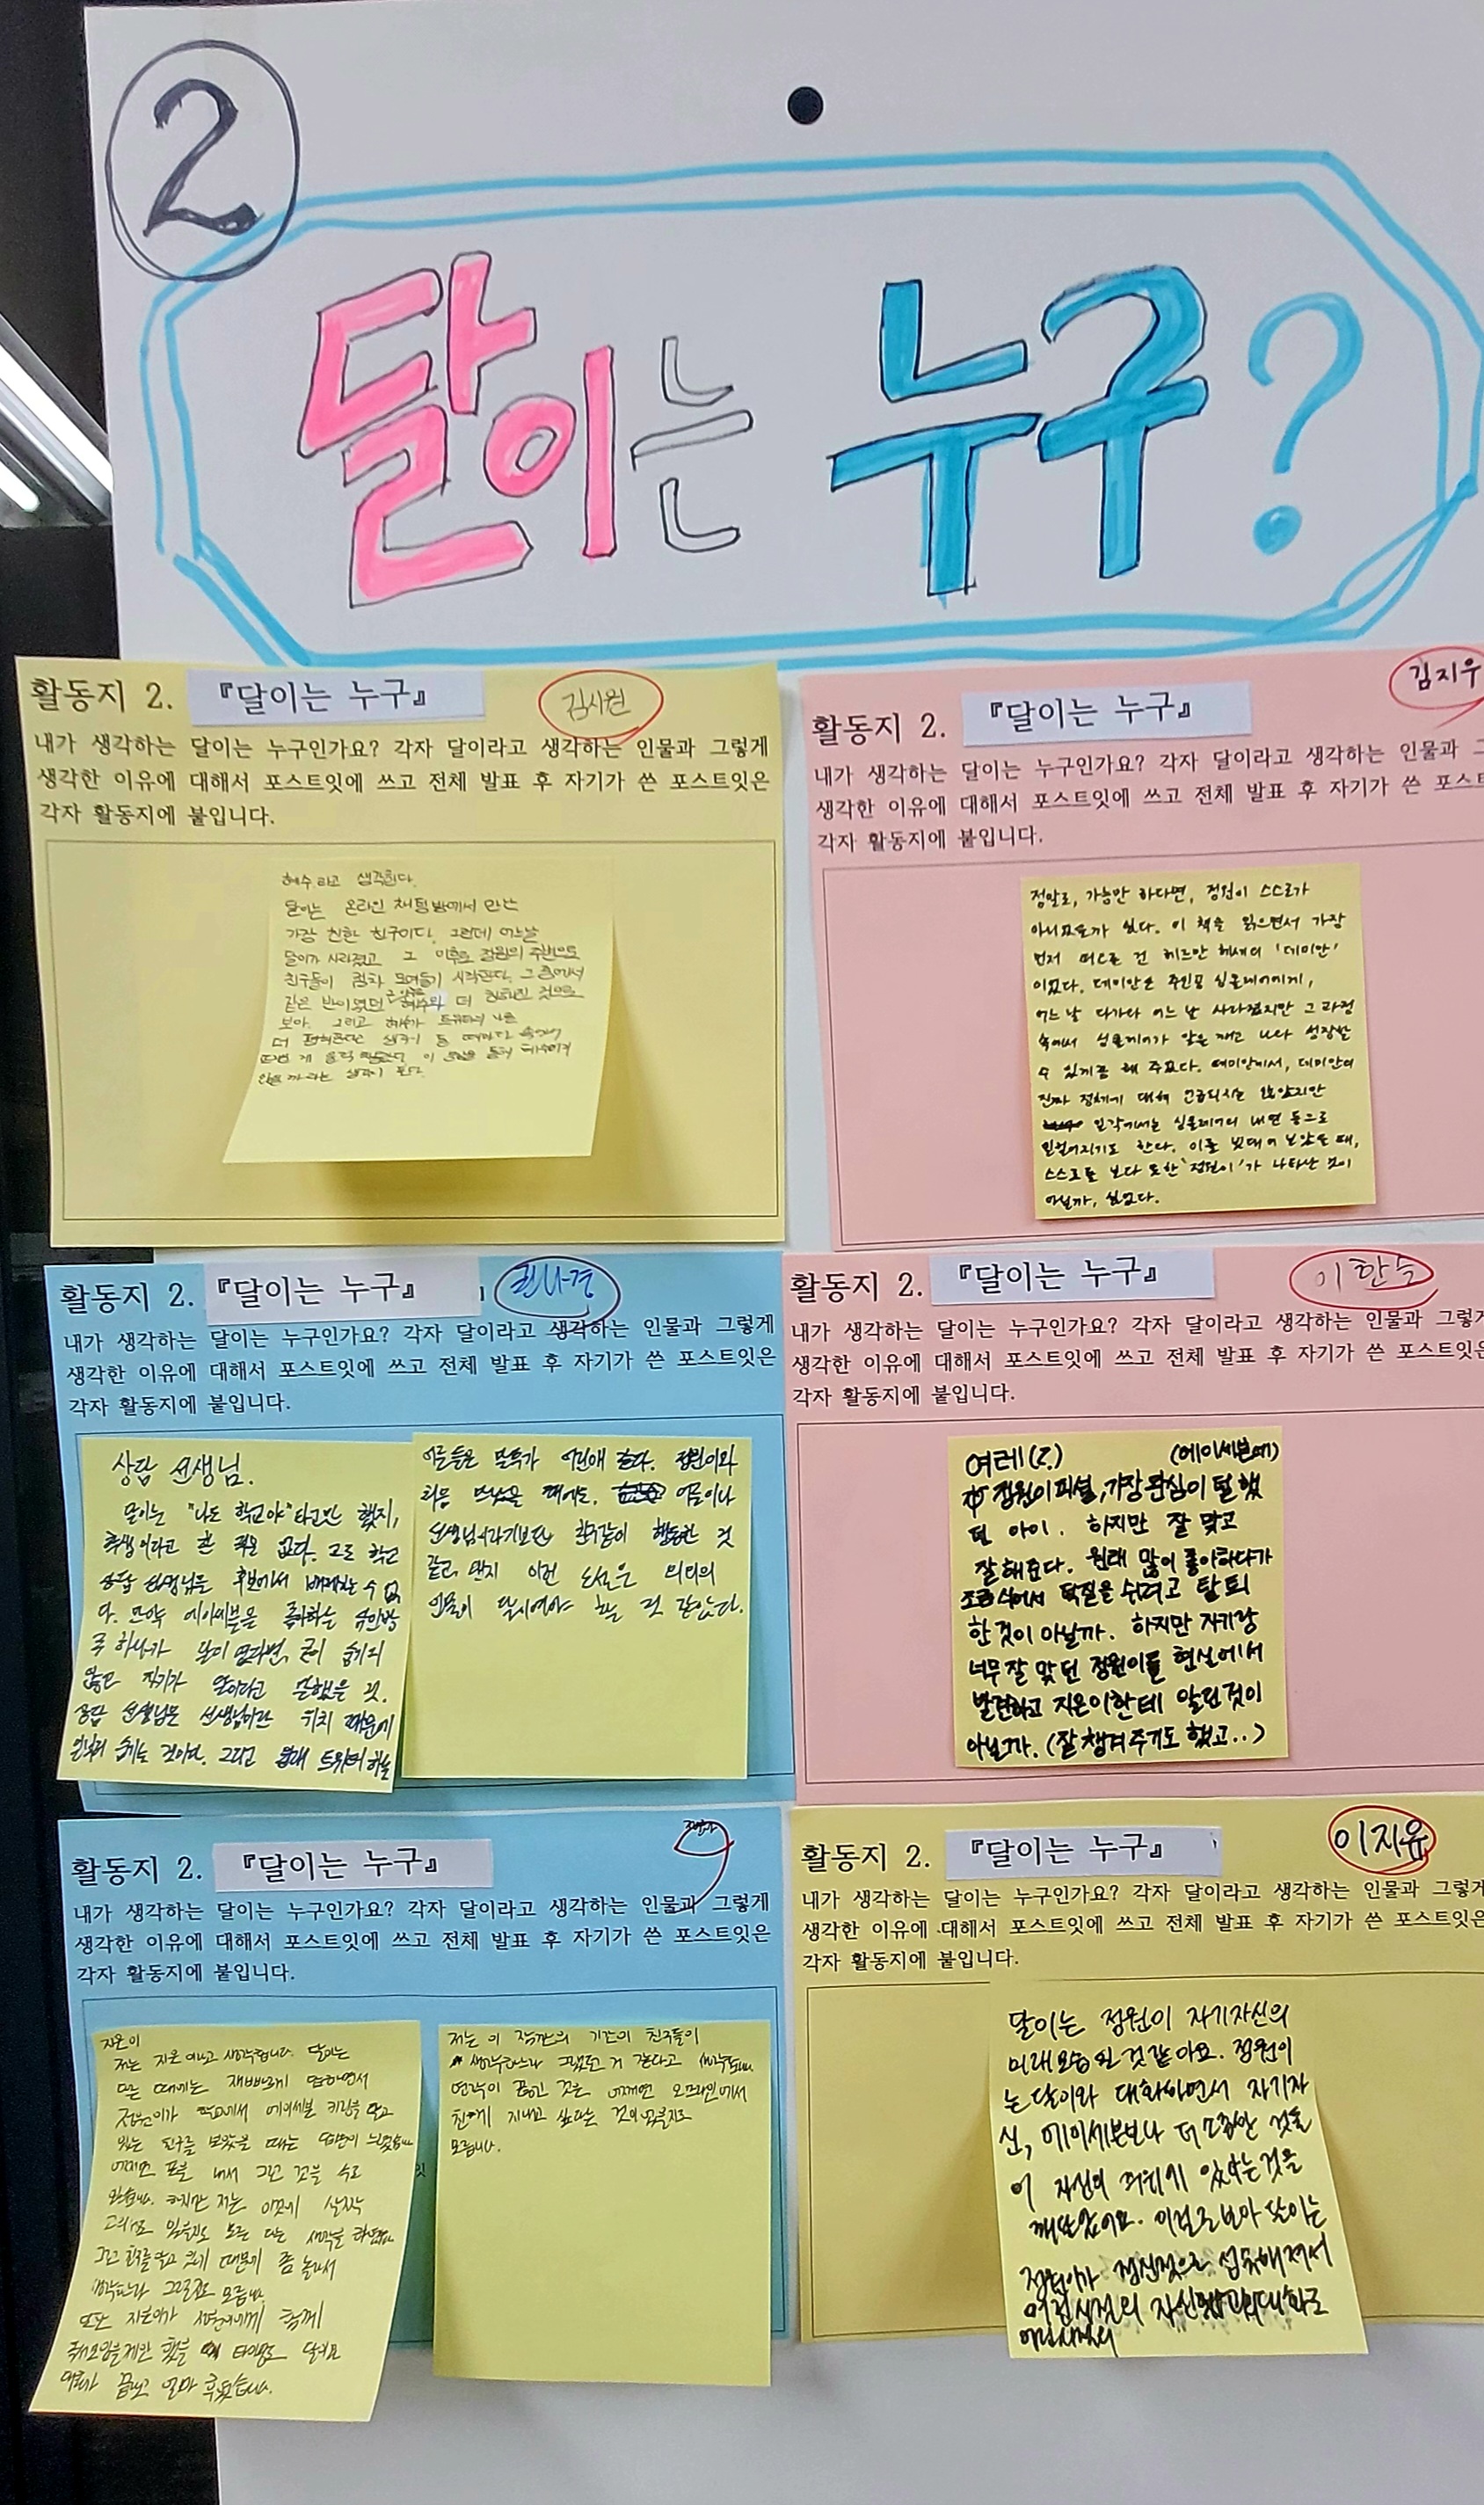 2
달이는 누구?
활동지 2. 『달이는 누구』 김시원
내가 생각하는 달이는 누구인가요? 각자 달이라고 생각하는 인물과 그렇게
생각한 이유에 대해서 포스트잇에 쓰고 전체 발표 후 자기가 쓴 포스트잇은
각자 활동지에 붙입니다.
혜수라고 생각한다.
달이는 온라인 채팅방에서 만난
가장 친한 친구이다. 그런데 어느날
달이가 사라졌고 그 이후로 정원의 주변으로
친구들이 점차 모여들기 시작한다. 그 중에서
같은 반이었던 혜수와 더 친해진 것으로
보아. 그리고 혜수가
활동지 2. 『달이는 누구』 김지우
내가 생각하는 달이는 누구인가요? 각자 달이라고 생각하는 인물과 그
생각한 이유에 대해서 포스트잇에 쓰고 전체 발표 후 자기가 쓴 포스트
각자 활동지에 붙입니다.
정말로, 가능만 하다면, 정원이 스스로가
아니었을까 싶다. 이 책을 읽으면서 가장
먼저 떠오른 건 헤르만 헤세의 '데미안'
이었다. 데미안은 주인공 싱클레어에게,
어느 날 다가와 어느 날 사라졌지만 그 과정
속에서 싱클레어가 알을 깨고 나와 성장할
수 있게끔 해 주었다. 데미안에서, 데미안의
진짜 정체에 대해 언급되지는 않았지만
일각에서는 싱클레어의 내면 등으로
읽혀지기도 한다. 이를 빗대어 보았을 때,
스스로를 보다 못한 '정원이'가 나타난 것이
아닐까, 싶었다.
활동지 2. 『달이는 누구』
내가 생각하는 달이는 누구인가요? 각자 달이라고 생각하는 인물과 그렇게
생각한 이유에 대해서 포스트잇에 쓰고 전체 발표 후 자기가 쓴 포스트잇은
각자 활동지에 붙입니다.
상담 선생님.
달이는 "나도 학교야"라고만 했지,
학생이라고 한 적은 없다. 고로 학교
상담 선생님도 후보에서 배제할 수 없
다. 만약 에이세븐을 좋아하는
중 하나가 달이 였다면, 굳이 숨기지
않고 자기가 달이라고 말했을 것.
상담 선생님은 선생님이란 위치 때문에
숨기는 것이다. 그리고 원래 트위터 하는
어른들은 말투가 어린애 같다. 정원이와
처음 만났을 때에도, 어른이나
선생님이라기보단 친구같이 행동한 것
같고, 왠지 이런 소설은 의외의
인물이 달이여야 할 것 같았다.
활동지 2. 『달이는 누구』 이한슬
내가 생각하는 달이는 누구인가요? 각자 달이라고 생각하는 인물과 그렇게
생각한 이유에 대해서 포스트잇에 쓰고 전체 발표 후 자기가 쓴 포스트잇은
각자 활동지에 붙입니다.
여레(?) (에이세븐에)
정원이 피셜, 가장 관심이 덜 했
던 아이. 하지만 잘 맞고
잘해준다. 원래 많이 좋아하다가
조금 식어서 덕질을 쉬려고 탈퇴
한것이 아닐까. 하지만 자기랑
너무 잘 맞던 정원이를 현실에서
발견하고 지온이한테 알린것이
아닐까. (잘 챙겨주기도 했고..)
활동지 2. 『달이는 누구』
내가 생각하는 달이는 누구인가요? 각자 달이라고 생각하는 인물과 그렇게
생각한 이유에 대해서 포스트잇에 쓰고 전체 발표 후 자기가 쓴 포스트잇은
각자 활동지에 붙입니다.
지온이
저는 지온이라고 생각합니다. 달이는
다른 때에는 재빠르게 답하면서
정원이가 학교에서 에이세븐 키링을 달고
있는 친구를 보았을 때는 답변이 느렸습니다
저는 이 잠깐의 기간이 친구들이
생각하느라 그랬던 거 같다고 생각합니다.
연락이 끊긴 것은 어쩌면 오프라인에서
친하게 지내고 싶다는 것이었을지도
모릅니다.
활동지 2. 『달이는 누구』 이지윤
내가 생각하는 달이는 누구인가요? 각자 달이라고 생각하는 인물과 그렇게
생각한 이유에 대해서 포스트잇에 쓰고 전체 발표 후 자기가 쓴 포스트잇은
각자 활동지에 붙입니다.
달이는 정원이 자기자신의
미래모습인 것 같아요. 정원이
는 달이와 대화하면서 자기자
신, 에이세븐보다 더 소중한 것들
이 자신의 주위에 있다는 것을
깨달았어요. 이걸로 보아 달이는
정원이가 정신적으로 성숙해져서